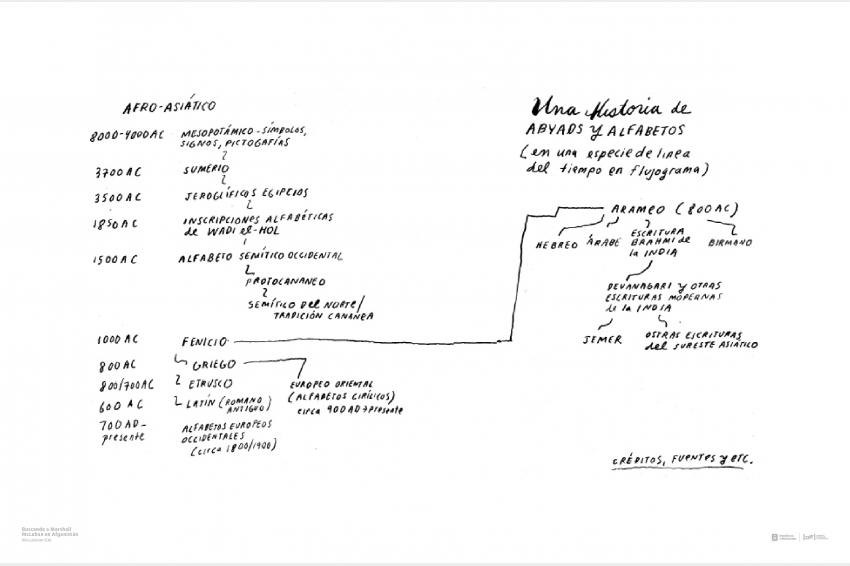 AFRO-ASIÁTICO
8000-4000AC MESOPOTÁMICO-SÍMBOLOS,
SIGNOS, PICTOGAFÍAS
3700 AC SUMERIO
3500 AC JEROGLÍFICOS EGIPCIOS
1850 AC INSCRIPCIONES ALFABÉTICAS
de WADI el-HOL
1500 AC ALFABETO SEMÍTICO OCCIDENTAL
PROTOCANANEO
SEMÍTICO DEL NORTE/
TRADICIÓN CANANEA
1000 AC FENICIO
800 AC GRIEGO
800/700AC ETRUSCO
600 AC LATÍN (ROMANO
ANTIGUO)
700 AD-
presente
ALFABETOS EUROPEOS
OCCIDENTALES
(circa 1800/1900)
EUROPEO ORIENTAL
(ALFABETOS CIRÍLICOS)
circa 900 AD→presente
Una Historia de
ABYADS Y ALFABETOS
(en una especie de línea
del tiempo en flujograma)
ARAMEO (800AC)
HEBREO ÁRABE
ESCRITURA
BRAHMI de
la INDIA
BIRMANO
DEVANAGARI y OTRAS
ESCRITURAS MODERNAS
de la INDIA
JEMER
OSTRAS ESCRITURAS
del SURESTE ASIÁTICO
CRÉDITOS, FUENTES y etc.
Buscando a Marshall
McLuhan en Afganistán